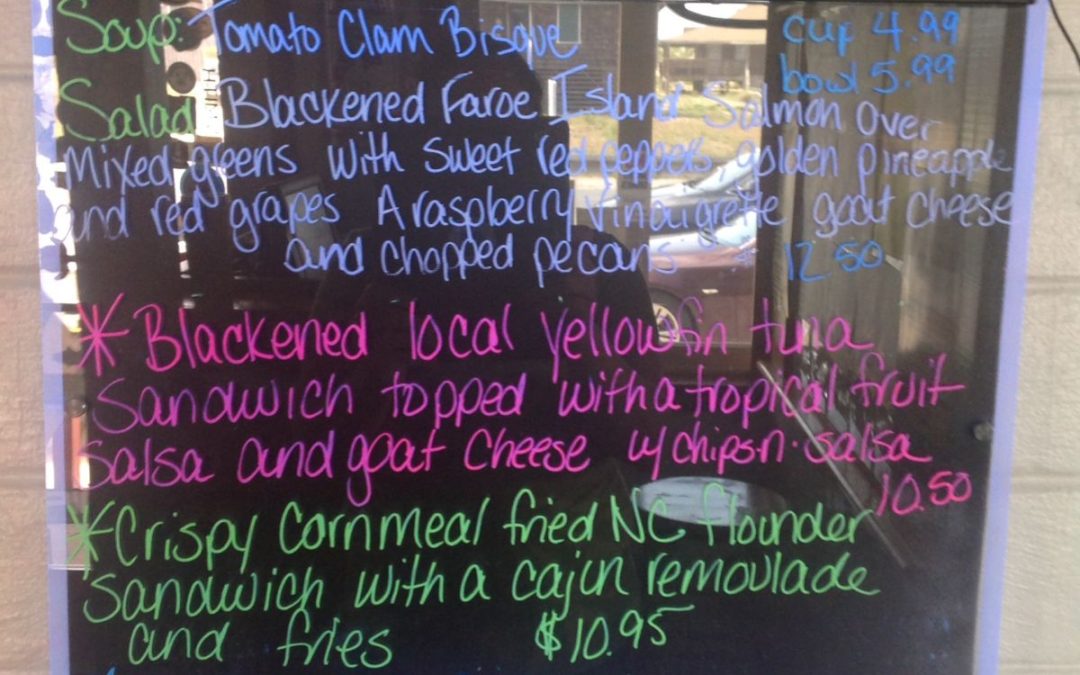 Soup: Tomato Clam Bisque cup 4.99
bowl 5.99
Salad Blackened Faroe Island Salmon over
mixed greens with sweet red peppers, golden pineapple
and red grapes A raspberry vinaigrette goat cheese
and chopped pecans 12.50
*Blackened local yellowfin tuna
Sandwich topped with a tropical fruit
Salsa and goat cheese w/ chips n. salsa
10.50
*Crispy Cornmeal fried NC flounder
Sandwich with a cajun remoulade
and fries $10.95